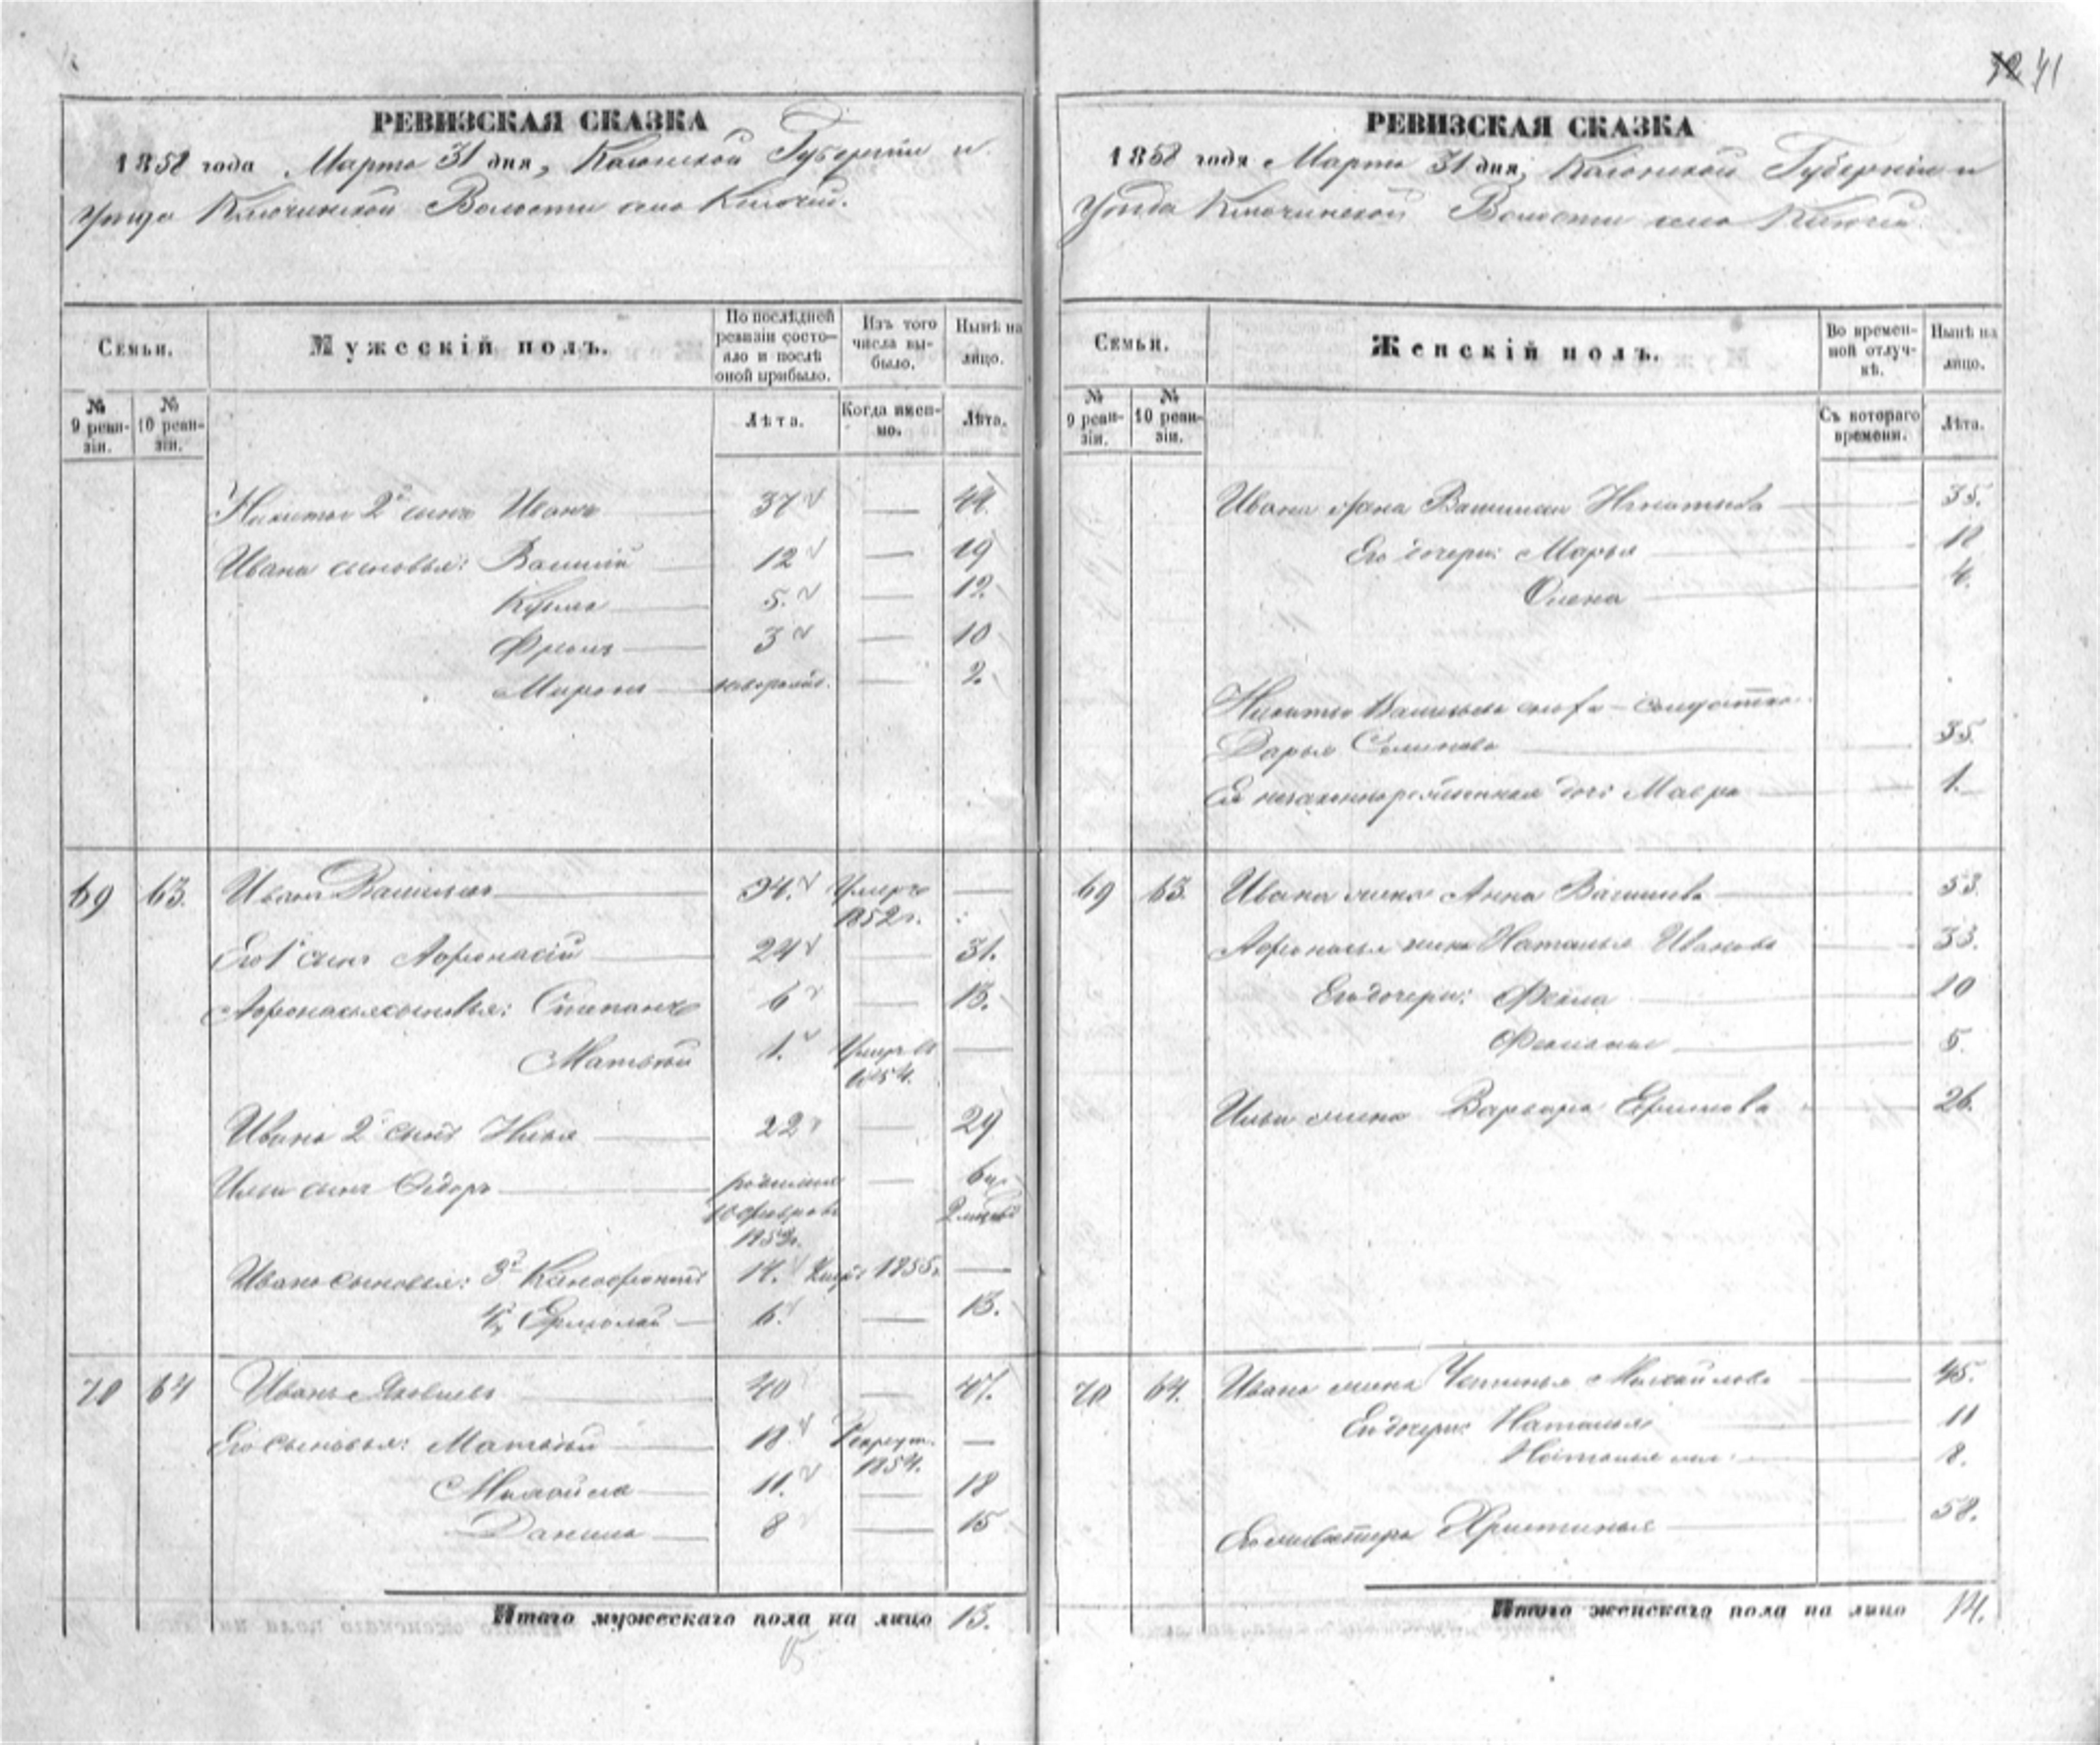 41
РЕВИЗСКАЯ СКАЗКА
1858 года Марта 31 дня, Каинской Губернiи и
Уезда Ключинской Волости села Ключей.
Семьи.
Мужескiй полъ.
По послѣдней ревизiи состояло и послѣ оной прибыло.
Изъ того числа выбыло.
Нынѣ на лицо.
№ 9 ревизiи.
№ 10 ревизiи.
Лѣта.
Когда именно.
Лѣта.
Никиты 2й сынъ Иванъ 37 — 44
Ивана сыновья: Василiй 12 — 19
Кузма 5. — 12.
Фролъ 3 — 10
Миронъ новорожд. — 2.
69 63. Иванъ Васильевъ 54. Умеръ —
1852 г.
Его 1й сынъ Афонасiй 24 — 31.
Афонасья сыновья: Степанъ 6 — 13.
Матвѣй 1. Умеръ въ —
1854.
Ивана 2й сынъ Илья 22 — 29
Ильи сынъ Ѳедоръ родился —
10 Февраля
Ивана сыновья: 3й Ксенофонтъ 14. Умеръ 1855. —
4й Ермолай 6. — 13.
70 64 Иванъ Яковлевъ 40 — 47.
Его сыновья: Матвѣй 18 Рекрут. —
1854.
Михайла 11. — 18
Данила 8 — 15
Итого мужескаго пола на лицо 13.
15
РЕВИЗСКАЯ СКАЗКА
1858 года Марта 31 дня, Губернiи и
Уезда Ключинской Волости села Ключей
Семьи.
Женскiй полъ.
Во временной отлучкѣ.
Нынѣ на лицо.
№ 9 ревизiи.
№ 10 ревизiи.
Съ котораго времени.
Лѣта.
Ивана жена Василиса Игнатьева 35.
Его дочери: Марья 18
Олена 4.
Никиты Васильева сноха – солдатка
Дарья Семенова 35
Ея незаконнорожденная дочь Мавра 1.
69 63. Ивана жена Анна Васильева 53.
Афонасья жена Наталья Иванова 33.
Его дочери: Фекла 10
5.
Ильи жена Варвара Ефимова 26.
70 64. Ивана жена Михайлова 45.
Его дочери: Наталья 11
Наталья мал: 8.
Христинья 58.
Итого женскаго пола на лицо 14.